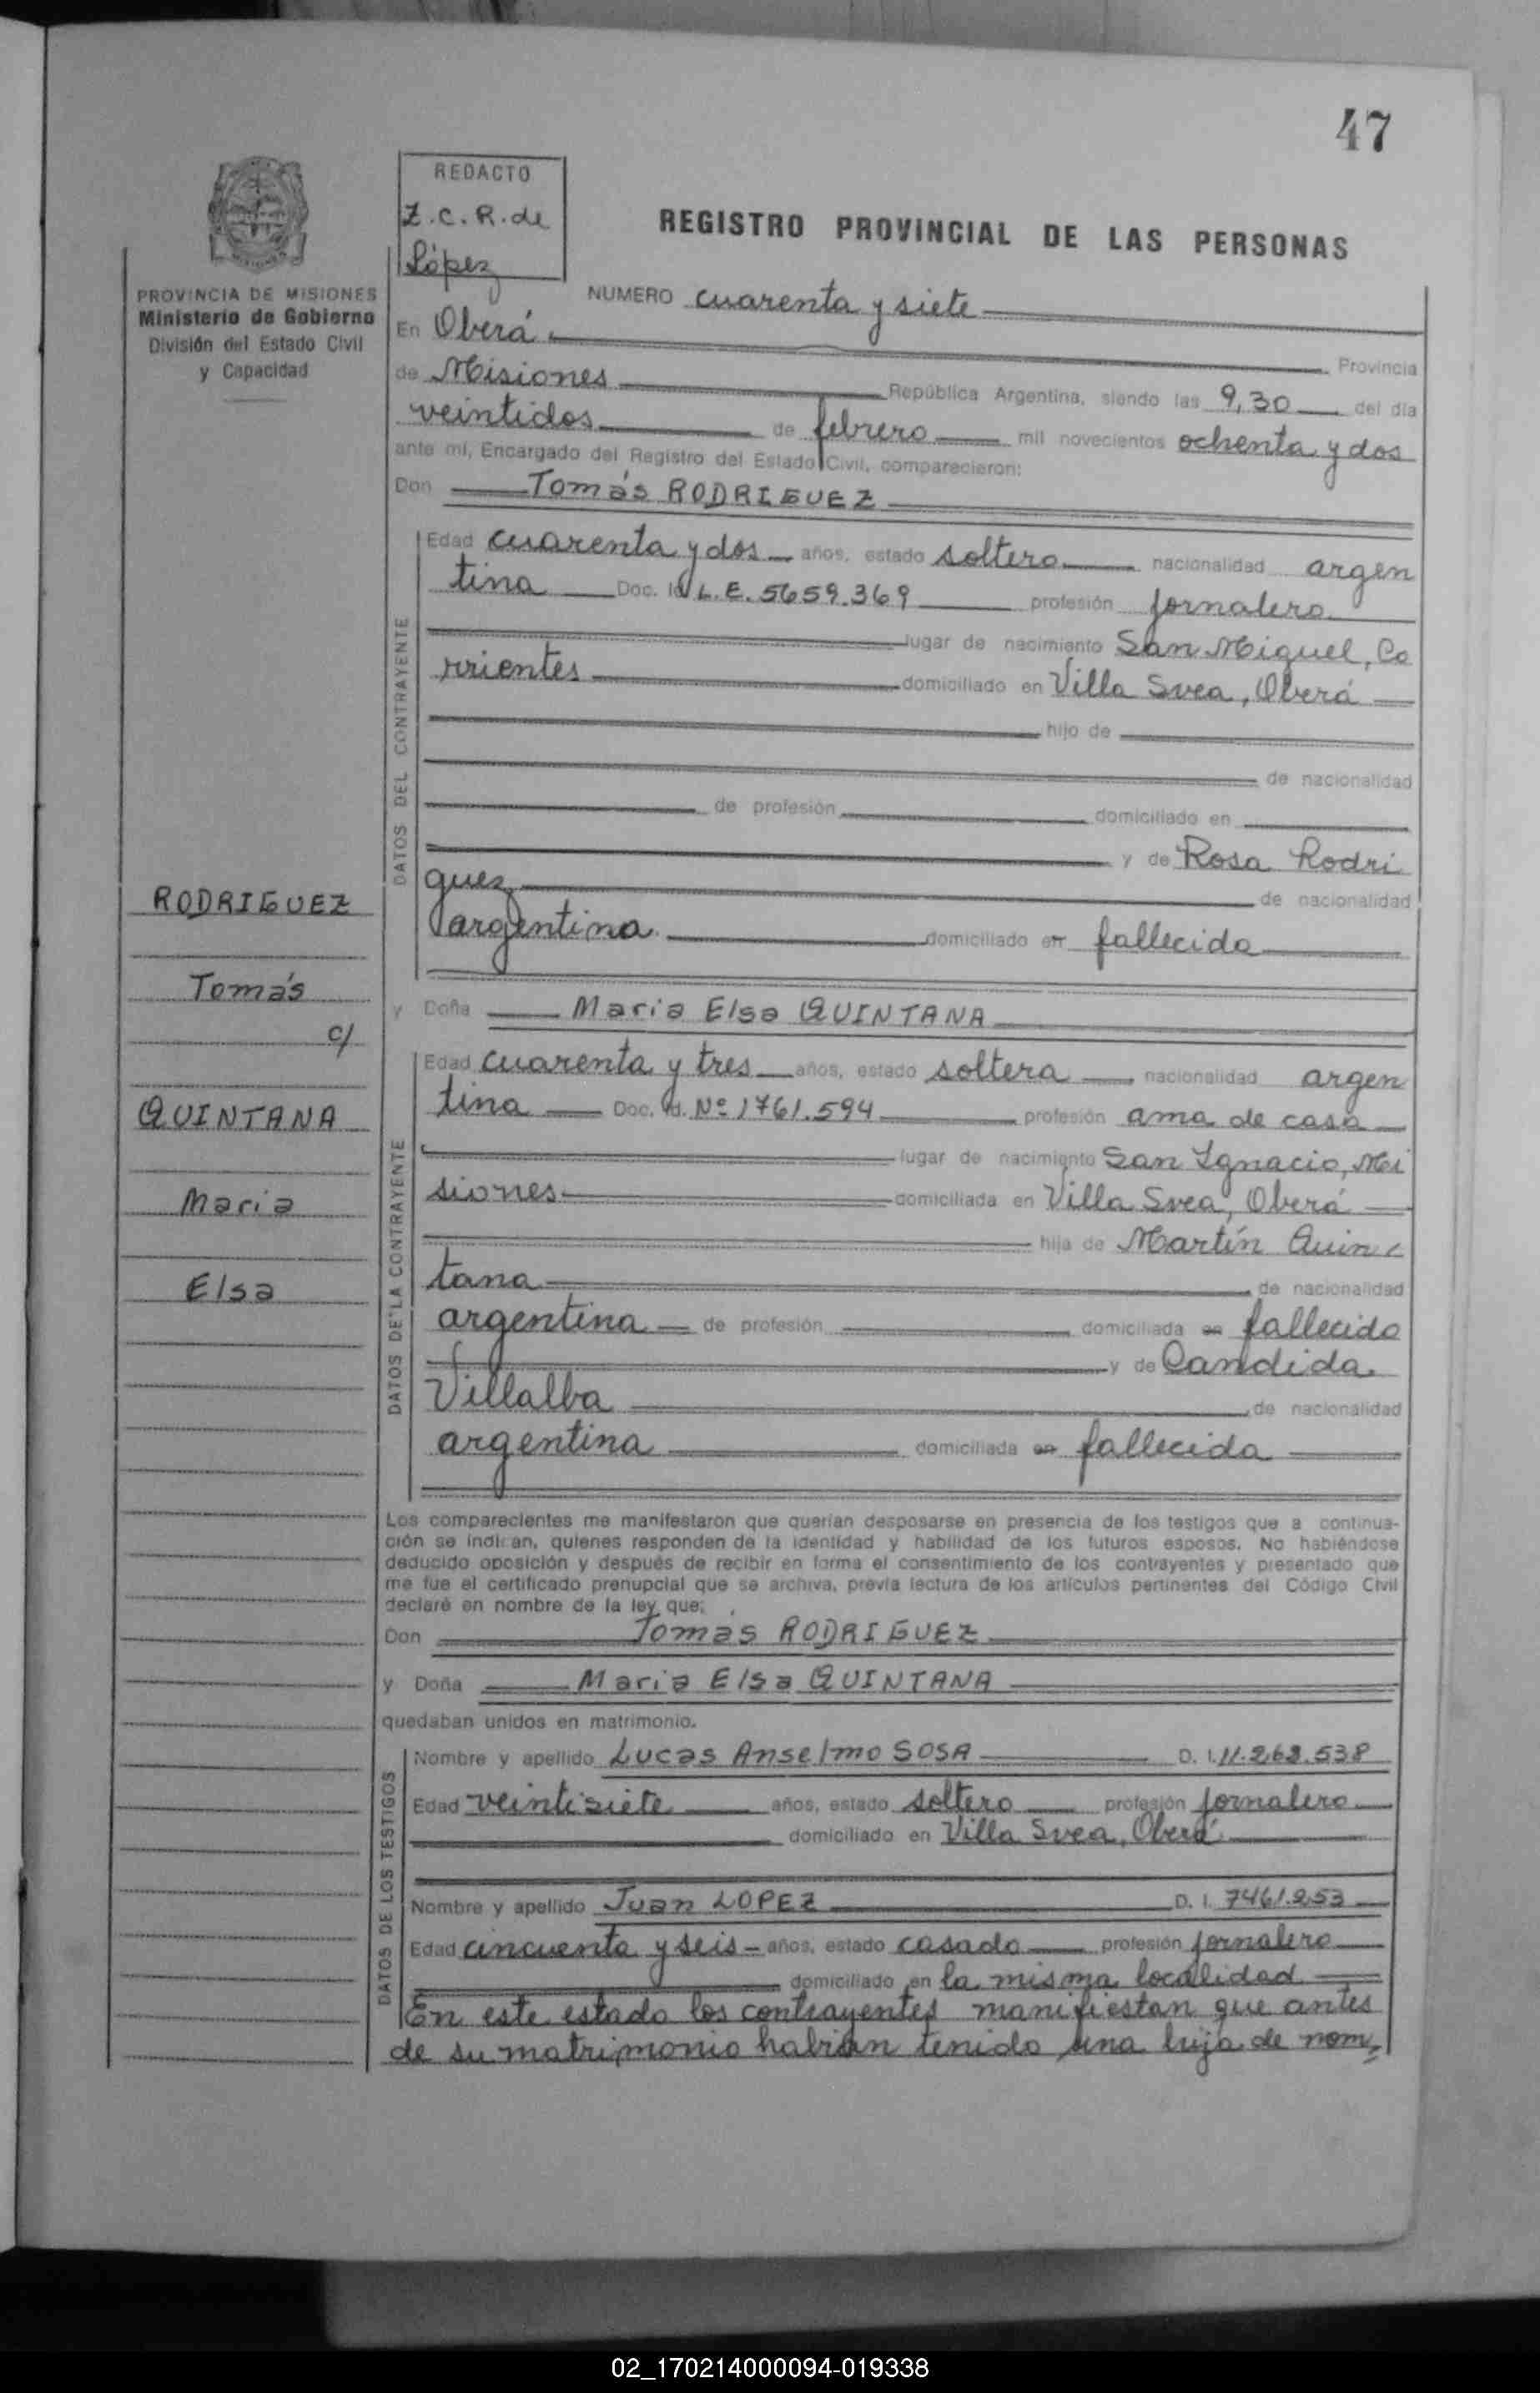 47
REDACTO
Z.C.R. de
López
REGISTRO PROVINCIAL DE LAS PERSONAS
PROVINCIA DE MISIONES
Ministerio de Gobierno
División del Estado Civil
y Capacidad
NUMERO cuarenta y siete
En Oberá Provincia
de Misiones República Argentina, siendo las 9,30 del día
veintidos de febrero mil novecientos ochenta y dos
ante mí, Encargado del Registro del Estado Civil, comparecieron:
Don Tomás RODRIGUEZ
DATOS DEL CONTRAYENTE
Edad cuarenta y dos años, estado soltero nacionalidad argen
tina Doc. Id. L.E. 5659.369 profesión jornalero
lugar de nacimiento San Miguel, Co
rrientes domiciliado en Villa Svea, Oberá
hijo de
de nacionalidad
de profesión domiciliado en
y de Rosa Rodri
guez de nacionalidad
argentina domiciliado en fallecida
RODRIGUEZ
Tomás
c/
QUINTANA
Maria
Elsa
y Doña Maria Elsa QUINTANA
DATOS DE LA CONTRAYENTE
Edad cuarenta y tres años, estado soltera nacionalidad argen
tina Doc. Id. Nº 1761.594 profesión ama de casa
lugar de nacimiento San Ignacio, Mi
siones domiciliada en Villa Svea, Oberá
hija de Martín Quin
tana de nacionalidad
argentina de profesión domiciliada en fallecido
y de Candida
Villalba de nacionalidad
argentina domiciliada en fallecida
Los comparecientes me manifestaron que querían desposarse en presencia de los testigos que a continua-
ción se indican, quienes responden de la identidad y habilidad de los futuros esposos. No habiéndose
deducido oposición y después de recibir en forma el consentimiento de los contrayentes y presentado que
me fue el certificado prenupcial que se archiva, previa lectura de los artículos pertinentes del Código Civil
declaré en nombre de la ley que:
Don Tomás RODRIGUEZ
y Doña Maria Elsa QUINTANA
quedaban unidos en matrimonio.
DATOS DE LOS TESTIGOS
Nombre y apellido Lucas Anselmo SOSA D. I. 11.262.538
Edad veintisiete años, estado soltero profesión jornalero
domiciliado en Villa Svea, Oberá
Nombre y apellido Juan LOPEZ D. I. 7461.253
Edad cincuenta y seis años, estado casado profesión jornalero
domiciliado en la misma localidad
En este estado los contrayentes manifiestan que antes
de su matrimonio habian tenido una hija de nom=
02_170214000094-019338